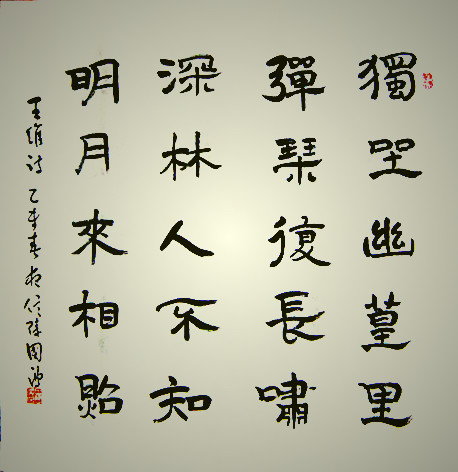 獨坐幽篁里
彈琴復長嘯
深林人不知
明月來相照
王維詩 乙未春